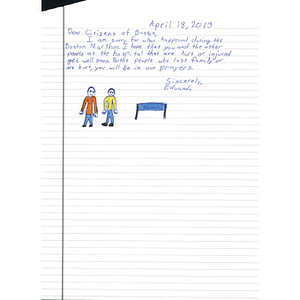 April 18, 2013
Dear Citizens of Boston,
I am sorry for what happened during the
Boston Marathon. I hope that you and the other
people at the hospital that are hurt or injured
get well soon. To the people who lost family or
are hurt, you will be in our prayers.
Sincerely,